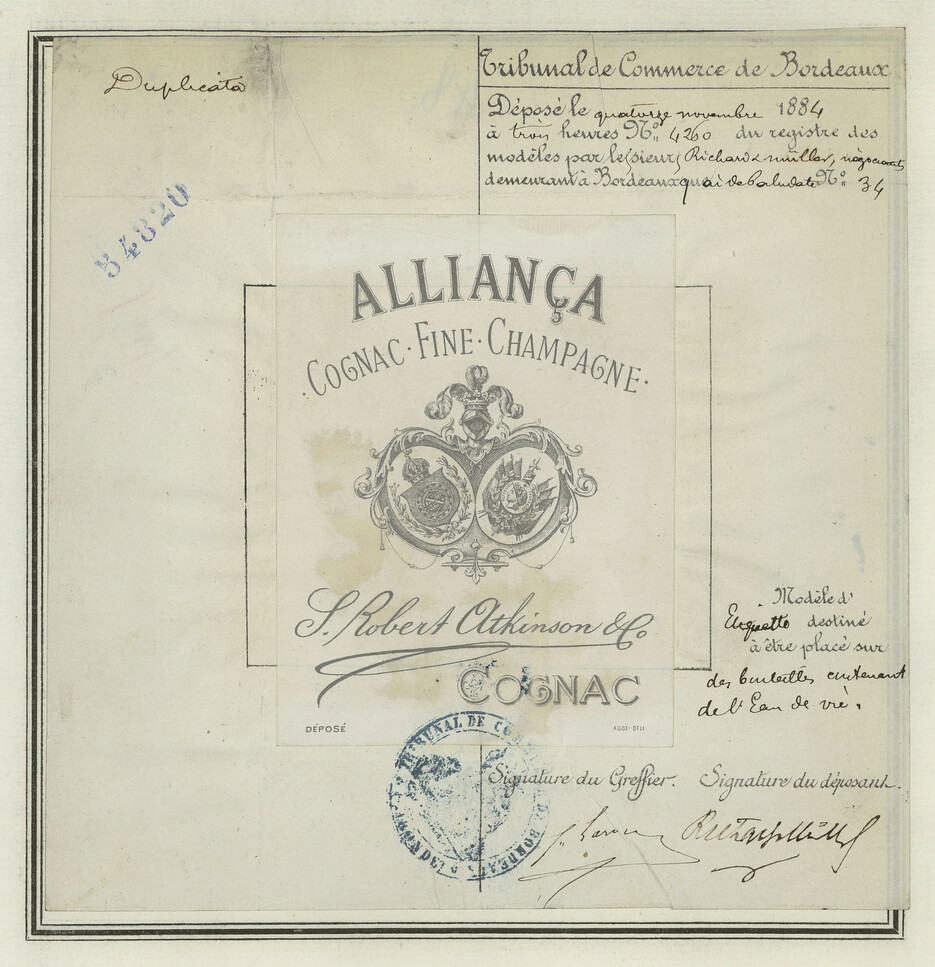 Duplicata
Tribunal de Commerce de Bordeaux
Déposé le quatorze novembre 1884
à trois heures No. 4260 du registre des
modèles par le(sieur) Richard & müller, négociants
demeurant à Bordeaux quai de Paludate No. 34
54820
ALLIANÇA
COGNAC · FINE · CHAMPAGNE ·
S. Robert Atkinson & Co
COGNAC
DÉPOSÉ
Modèle d'
Etiquette destiné
à être placé sur
des bouteilles contenant
de l'Eau de vie.
TRIBUNAL DE COMMERCE DE BORDEAUX
Signature du Greffier. Signature du déposant.